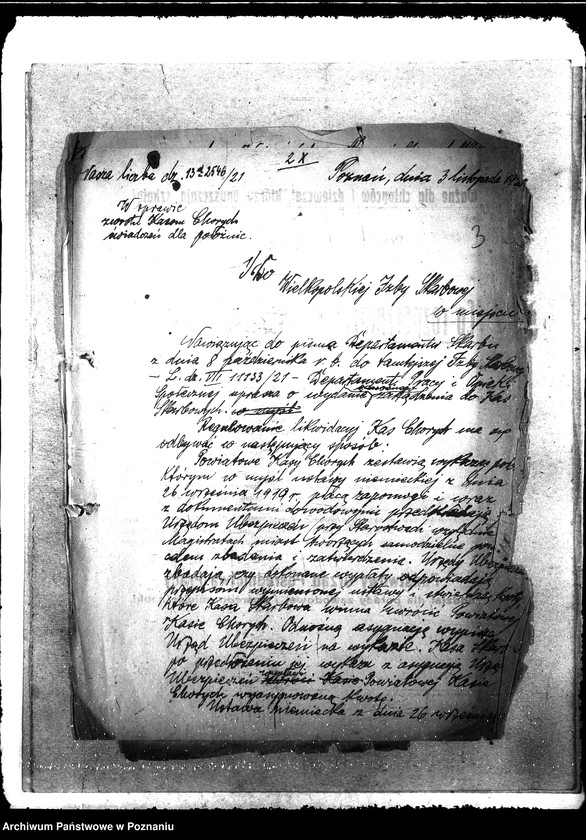 Nasza liczba dz. 13a 2546/21
2 X
Poznań, dnia 3 listopada
W sprawie
zwrotu Kasom Chorych
świadczeń dla położnic.
3
Do
Wielkopolskiej Izby Skarbowej
w miejscu
Nawiązując do pisma Departamentu Skarbu
z dnia 8 października r. b. do tamtejszej Izby Skarbowej
- L. dz. VII 11133/21 - Departament Pracy i Opieki
Społecznej uprasza o wydanie zarządzenia do Kas
Skarbowych. w myśl
Regulowanie likwidacyj Kas Chorych ma się
odbywać w następujący sposób:
Powiatowe Kasy Chorych zestawią wykazy
którym w myśl ustawy niemieckiej z dnia
26 września 1919 r. płacą zapomogę i wraz
z dokumentami dowodowymi
Urzędom Ubezpieczeń przy Starostwach względnie
Magistratach miast tworzących samodzielne
celem zbadania i zatwierdzenia. Urzędy
zbadają czy dokonane wypłaty odpowiadają
przepisom wymienionej ustawy i stwierdzą
które Kasa Skarbowa winna zwrócić Powiatowej
Kasie Chorych. Odnośną asygnację wypisze
Urząd Ubezpieczeń na wykazie. Kasa
po przedłożeniu jej wykazu z asygnacją
Ubezpieczeń Kasie Powiatowej Kasie
Chorych wyasygnowaną kwotę.
Ustawa niemiecka z dnia 26 września
Archiwum Państwowe w Poznaniu